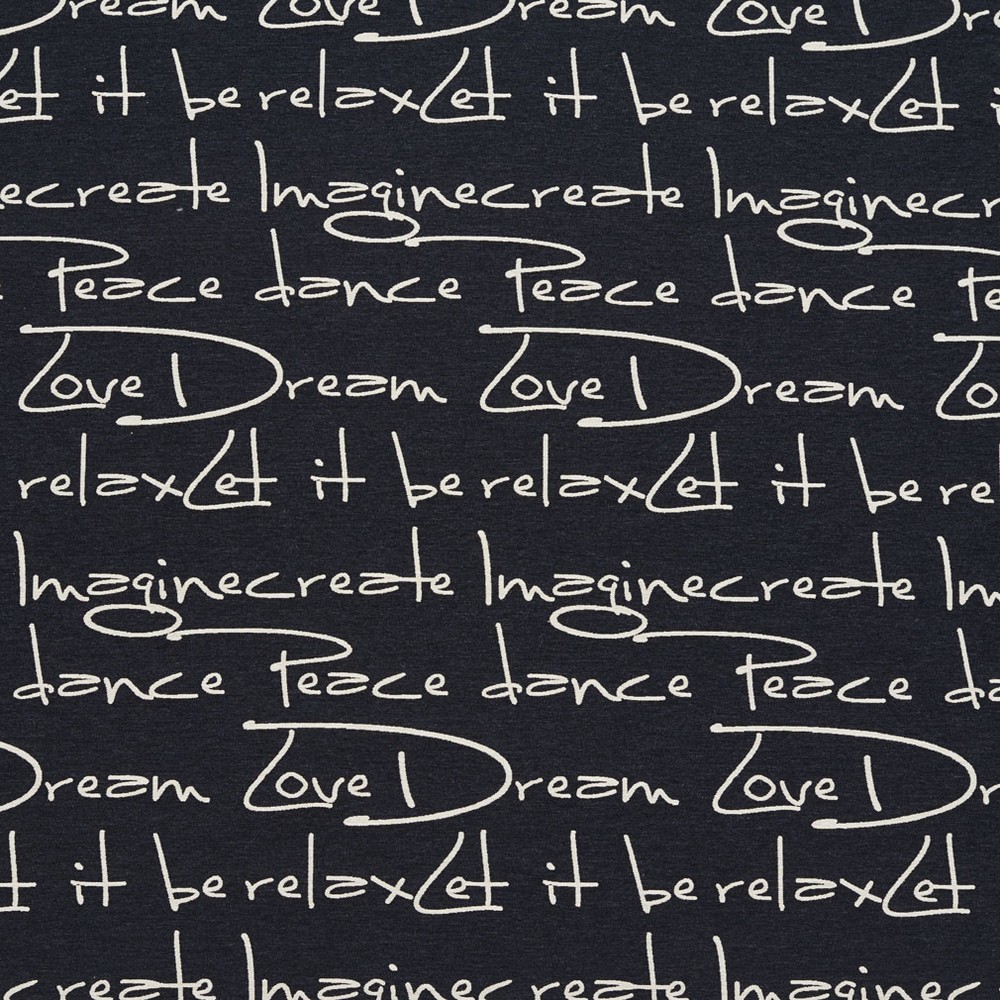 Dream Love Dre
Let it be relax Let it be relax Let i
ecreate Imagine create Imaginecr
Peace dance Peace dance Pe
Love Dream Love Dream Lo
relax Let it be relax Let it be re
Imagine create Imagine create Im
dance Peace dance Peace da
Dream Love Dream Love Dr
t it be relax Let it be relax Let
create Imagine create Imaginec